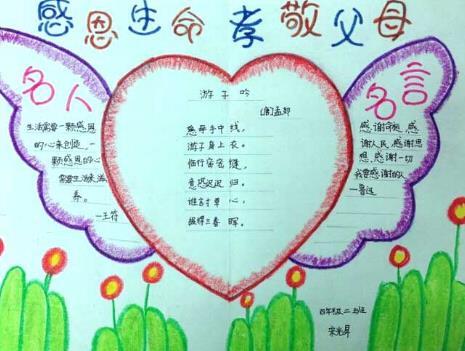 感恩生命孝敬父母
名人
生活需要一颗感恩
的心来创造,一
颗感恩的心
需要生活来滋
养。
—王符
游子吟
[唐]孟郊
慈母手中线,
游子身上衣。
临行密密缝,
意恐迟迟归。
谁言寸草心,
报得三春晖。
名言
感谢命运,感
谢人民,感谢思
想,感谢一切
我要感谢的人
—鲁迅
四年级二班